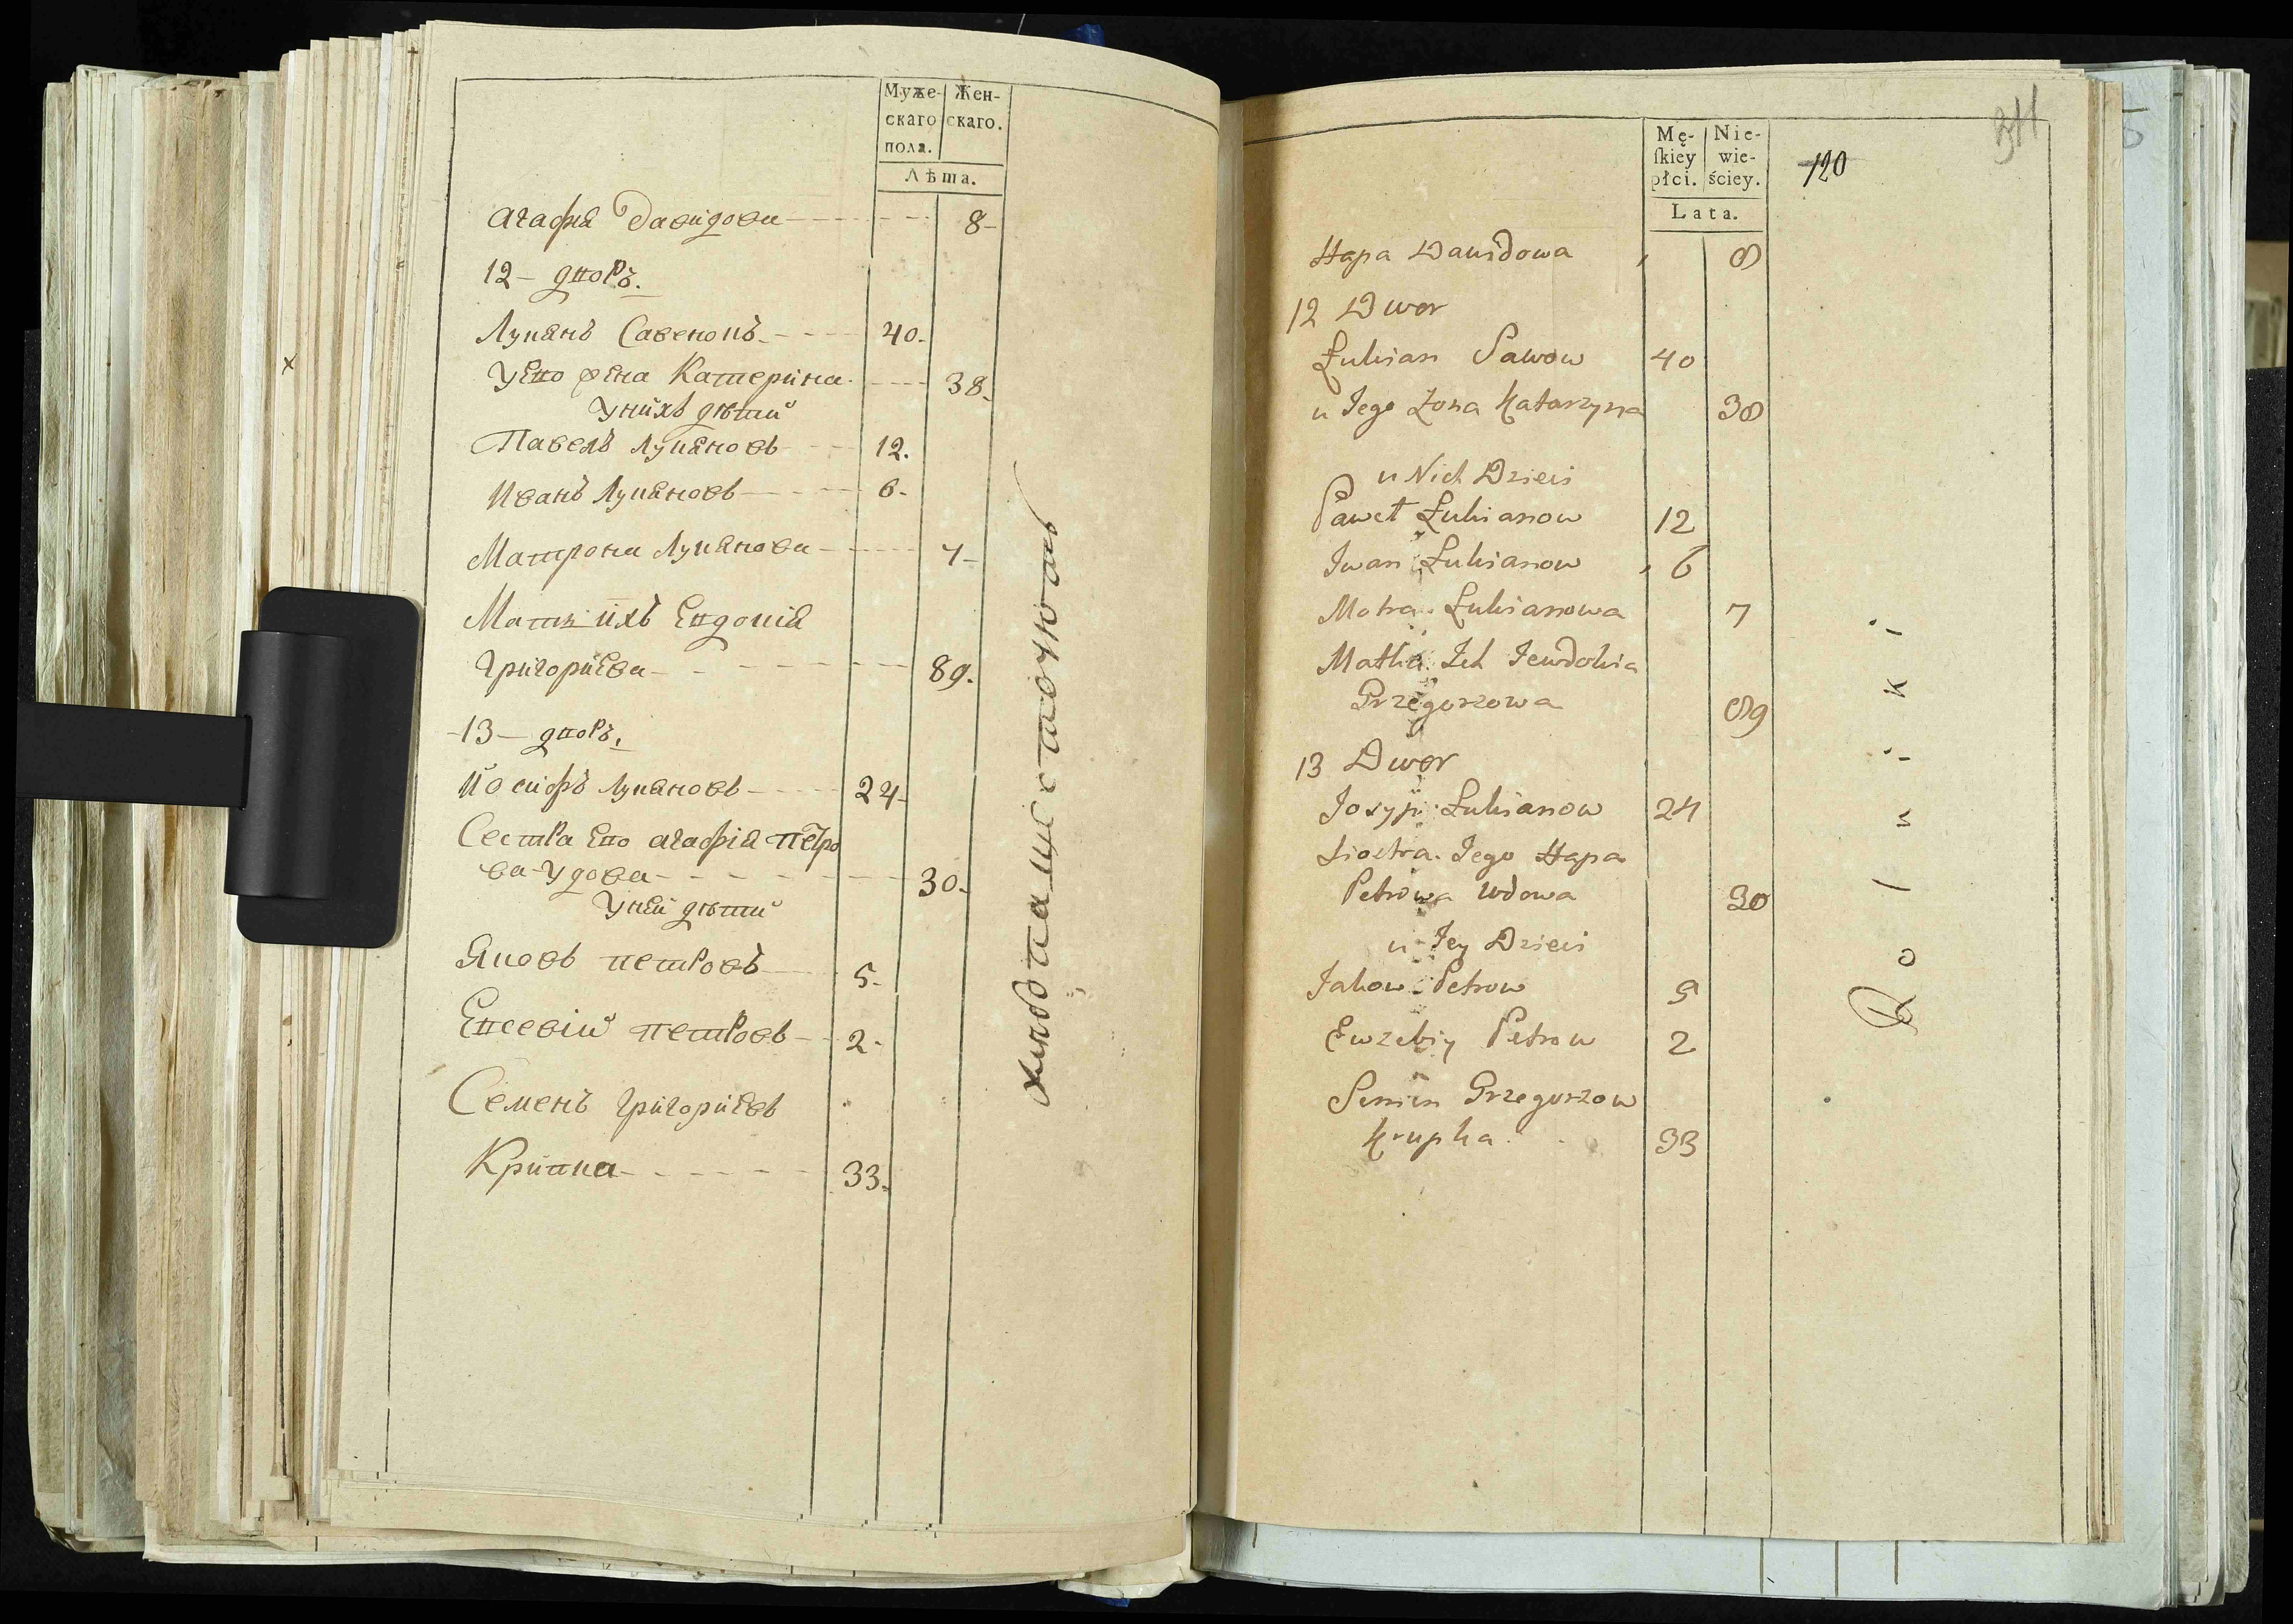 Муже- Жен-
скаго скаго.
пола.
Лѣта.
Агафія Давидова 8
12 дворъ.
Лукянъ Савековъ 40.
У Его жена Катерина 38.
У нихъ дѣти
Павелъ Лукяновъ 12.
Иванъ Лукяновъ 6.
Матрона Лукянова 7
Мать ихъ Евдокія
Григориева 89.
13 дворъ.
Иосифъ Лукяновъ 24
Сестра Его агафія петро
ва Удова 30.
У ней дѣти
Яковъ петровъ 5.
Евсевій петровъ 2.
Семенъ Григориевъ
Крупка 33.
Mę- Nie-
ſkiey wie-
płci. ściey.
Lata.
120
311
Hapa Dawidowa 8
12 Dwor
Łukian Sawow 40
u Jego Żona Katarzyna 38
u Nich Dzieci
Paweł Łukianow 12
Jwan Łukianow 6
Motra Łukianowa 7
Matka Ich Jewdokia
Grzegorzowa 89
13 Dwor
Josyp Łukianow 24
Siostra Jego Hapa
Petrowa Wdowa 30
u Jey Dzieci
Jakow Petrow 5
Ewzebiy Petrow 2
Semen Grzegorzow
Krupka 33